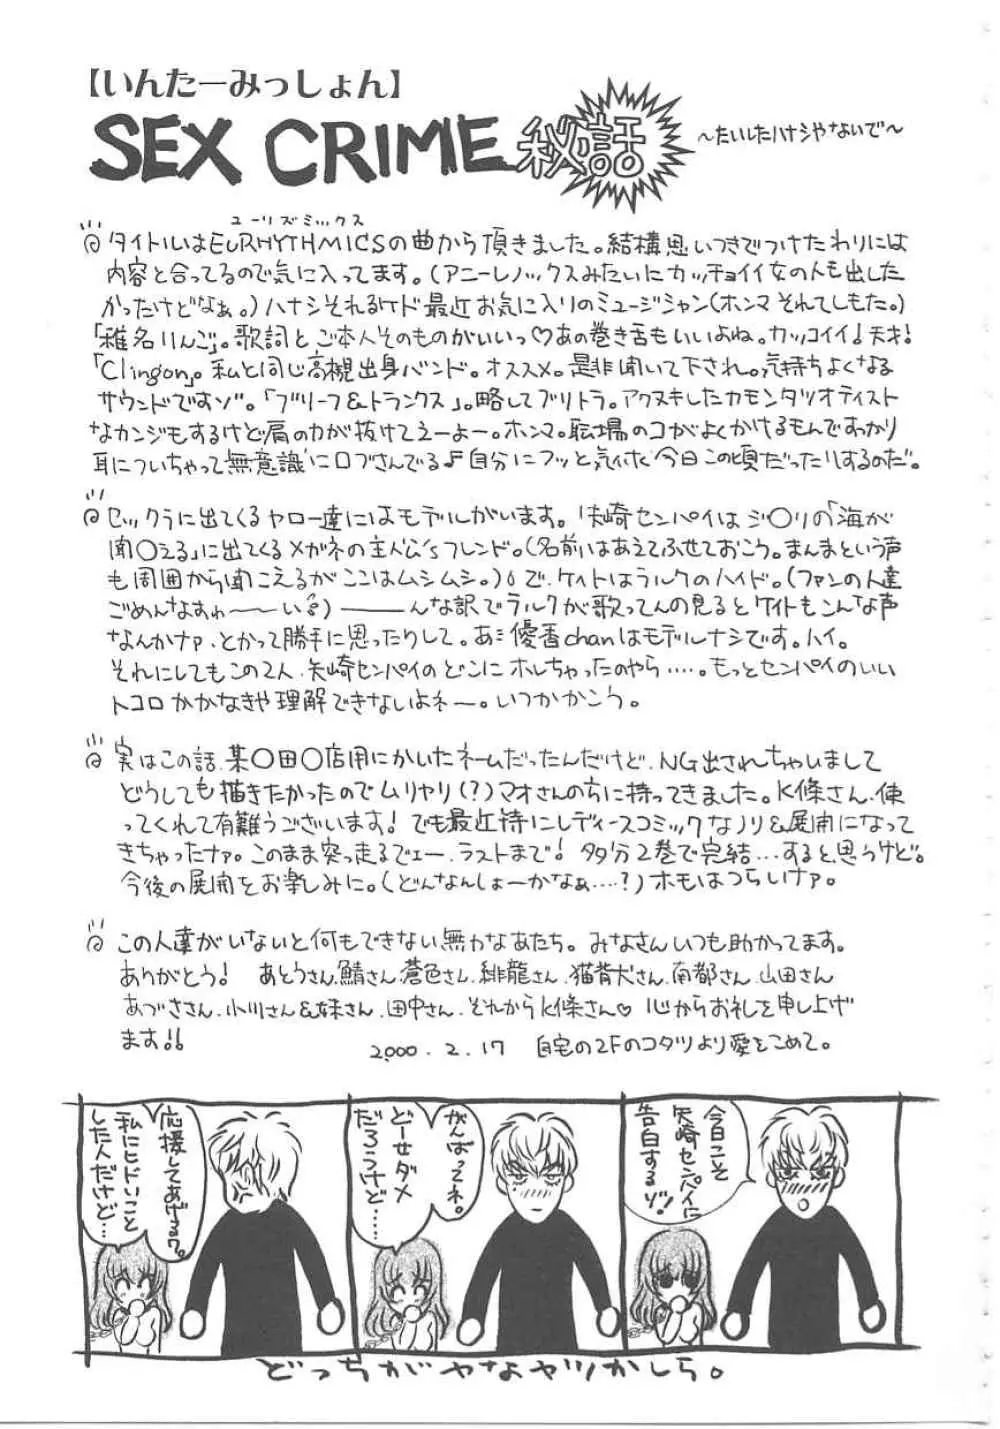 【いんたーみっしょん】
SEX CRIME 秘話 ～たいしたハナシやないで～
ユーリズミックス
タイトルはEURHYTHMICSの曲から頂きました。結構思いつきでつけたわりには
内容と合ってるので気に入ってます。(アニーレノックスみたいにカッチョイイ女の人も出した
かったけどなぁ。)ハナシそれるケド最近お気に入りのミュージシャン(ホンマそれてしもた。)
「椎名りんご」。歌詞とご本人そのものがいいっ♡あの巻き舌もいいよね。カッコイイ!天才!
「Clingon」。私と同じ高槻出身バンド。オススメ。是非聞いて下され。気持ちよくなる
サウンドですゾ。「ブリーフ&トランクス」。略してブリトラ。アクヌキしたカモンタツオテイスト
なカンジもするけど肩の力が抜けてえーよー。ホンマ。職場のコがよくかけるモんですっかり
耳についちゃって無意識に口ずさんでる♪自分にフッと気付く今日この頃だったりするのだ。
セックラに出てくるヤロー達にはモデルがいます。矢崎センパイはジ〇リの「海が
聞〇える」に出てくるメガネの主人公'sフレンド。(名前はあえてふせておこう。まんまという声
も周囲から聞こえるがここはムシムシ。)で、ケイトはラルクのハイド。(ファンの人達
ごめんなすわ～～い)――んな訳でラルクが歌ってんの見るとケイトもこんな声
なんかナァ、とかって勝手に思ったりして。あ、優香chanはモデルナシです。ハイ。
それにしてもこの2人、矢崎センパイのどこにホレちゃったのやら……。もっとセンパイのいい
トコロかかなきゃ理解できないよネー。いつかかこう。
実はこの話、某〇田〇店用にかいたネームだったんだけど、NG出されちゃいまして
どうしても描きたかったのでムリヤリ(?)マオさんのちに持ってきました。K條さん、使
ってくれて有難うございます!でも最近特にレディースコミックなノリ&展開になって
きちゃったナァ。このまま突っ走るでェー、ラストまで!多分2巻で完結…すると思うけど。
今後の展開をお楽しみに。(どんなんしょーかなぁ…?)ホモはつらいけァ。
この人達がいないと何もできない無力なあたち。みなさんいつも助かってます。
ありがとう! あとうさん、鯖さん、蒼色さん、緋龍さん、猫背犬さん、南都さん、山田さん
あづささん、小川さん&妹さん、田中さん、それからK條さん♡ 心からお礼を申し上げ
ます!!
2000.2.17 自宅の2Fのコタツより愛をこめて。
今日こそ
矢崎センパイに
告白するゾ!
がんばってネ。
どーせダメ
だろうけど……
応援してあげるワ。
私にヒドいこと
した人だけど…
どっちがヤなヤツかしら。